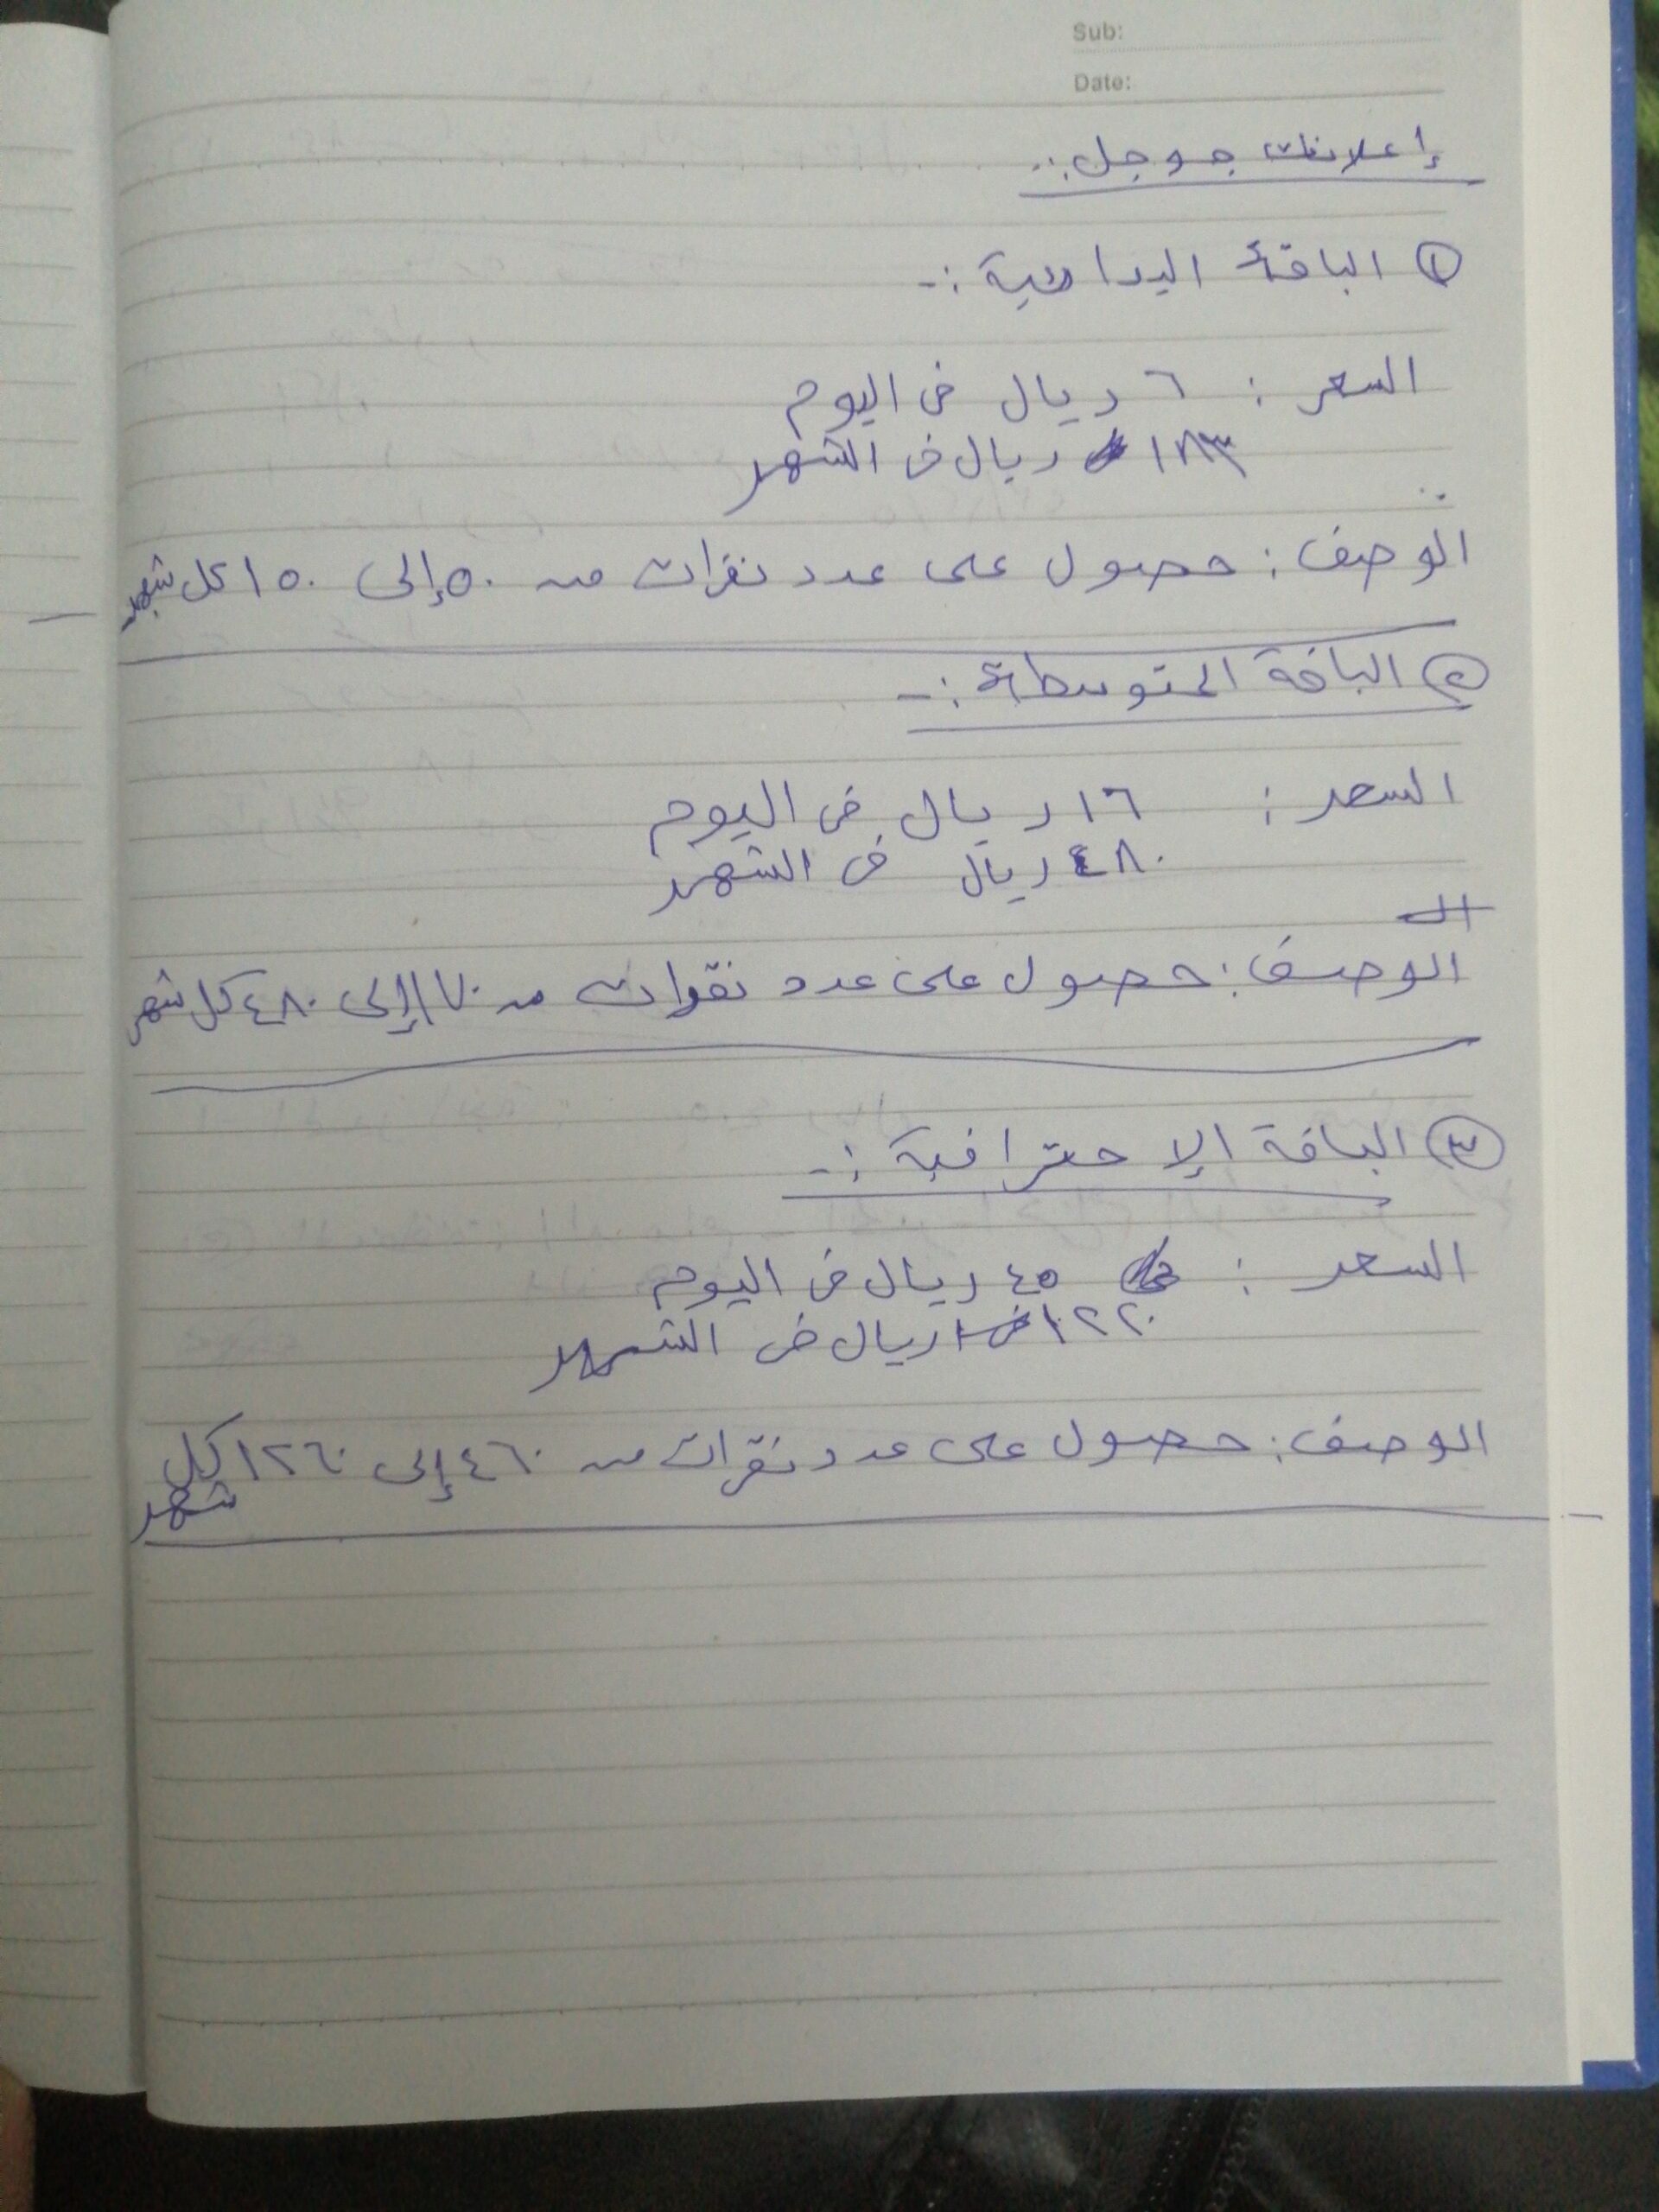 Sub:
Date:
إعلانات جوجل :.
① الباقة البدائية :-
السعر : ٦ ريال فى اليوم
١٨٣ ريال فى الشهر
الوصف : حصول على عدد نقرات من ٥٠ إلى ١٥٠ كل شهر
② الباقة المتوسطة :-
السعر : ١٦ ريال فى اليوم
٤٨٠ ريال فى الشهر
الوصف : حصول على عدد نقرات من ١٧٠ إلى ٤٨٠ كل شهر
③ الباقة الإحترافية :-
السعر : ٤٥ ريال فى اليوم
١٢٢٠ ريال فى الشهر
الوصف : حصول على عدد نقرات من ٤٦٠ إلى ١٢٦٠ كل
شهر